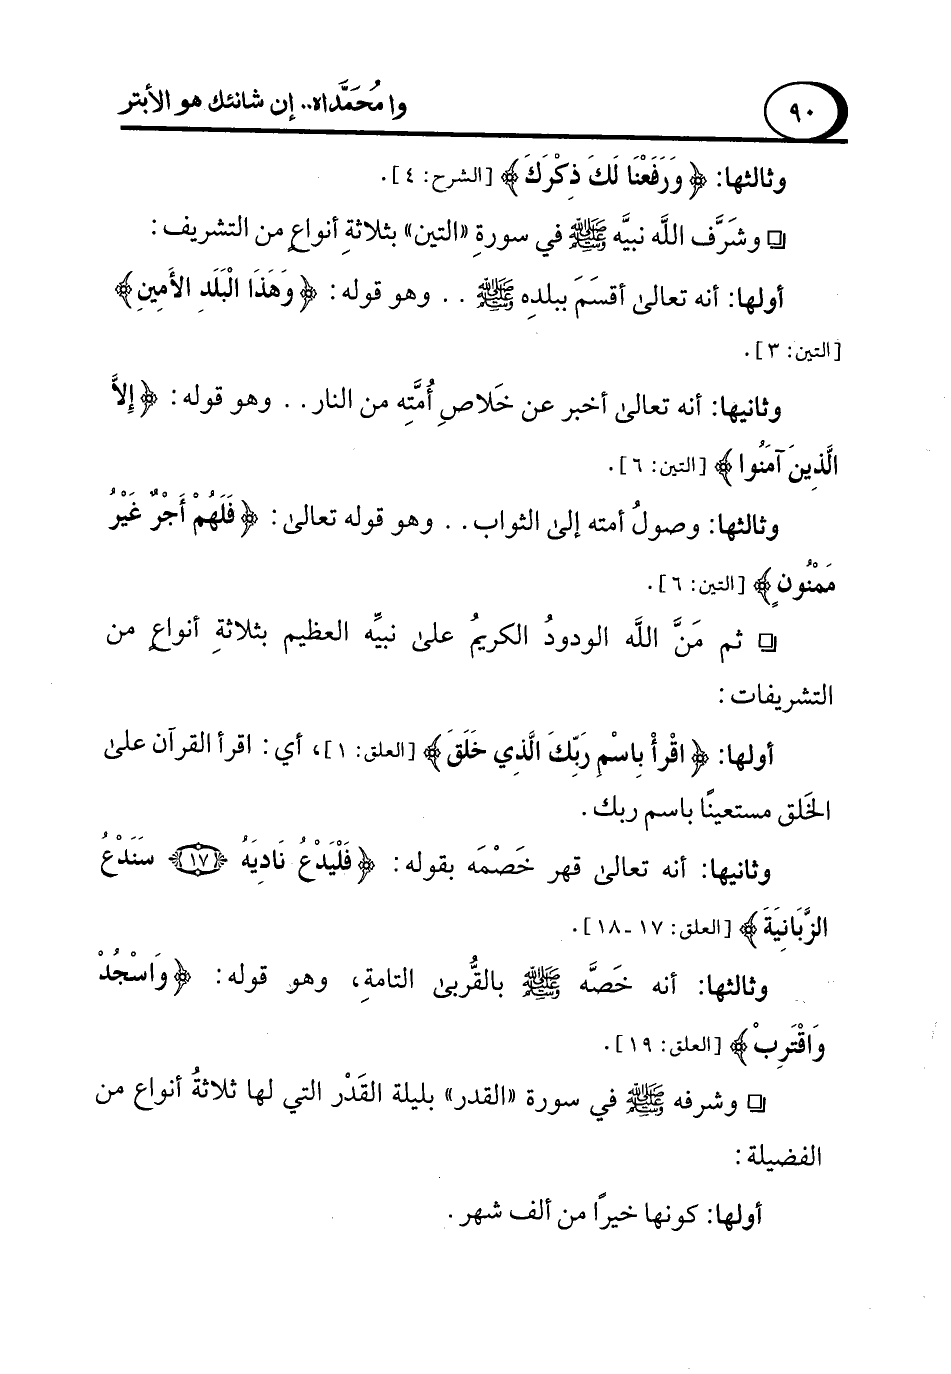 ٩٠
وا مُحَمَّداه.. إن شانئك هو الأبتر
وثالثها: ﴿وَرَفَعْنَا لَكَ ذِكْرَكَ﴾ [الشرح: ٤].
❑ وشَرَّف اللَّه نبيَّه ﷺ في سورةِ «التين» بثلاثةِ أنواعٍ من التشريف:
أولها: أنه تعالىٰ أقسَمَ ببلدِه ﷺ .. وهو قوله: ﴿وَهَذَا الْبَلَدِ الأَمِينِ﴾
[التين: ٣].
وثانيها: أنه تعالىٰ أخبر عن خَلاصِ أُمَّتِه من النار.. وهو قوله: ﴿إِلاَّ
الَّذِينَ آمَنُوا﴾ [التين: ٦].
وثالثها: وصولُ أمته إلىٰ الثواب.. وهو قوله تعالىٰ: ﴿فَلَهُمْ أَجْرٌ غَيْرُ
مَمْنُونٍ﴾ [التين: ٦].
❑ ثم مَنَّ اللَّه الودودُ الكريمُ علىٰ نبيِّه العظيم بثلاثةِ أنواعٍ من
التشريفات:
أولها: ﴿اقْرأْ بِاسْمِ رَبِّكَ الَّذِي خَلَقَ﴾ [العلق: ١]، أي: اقرأ القرآن علىٰ
الخَلق مستعينًا باسم ربك.
وثانيها: أنه تعالىٰ قهر خَصْمَه بقوله: ﴿فَلْيَدْعُ نَادِيَهُ (١٧) سَنَدْعُ
الزَّبَانِيَةَ﴾ [العلق: ١٧ -١٨].
وثالثها: أنه خَصَّه ﷺ بالقُربىٰ التامةِ، وهو قوله: ﴿وَاسْجُدْ
وَاقْتَرِبْ﴾ [العلق: ١٩].
❑ وشرفه ﷺ في سورة «القدر» بليلة القَدْر التي لها ثلاثةُ أنواع من
الفضيلة:
أولها: كونها خيرًا من ألف شهر.